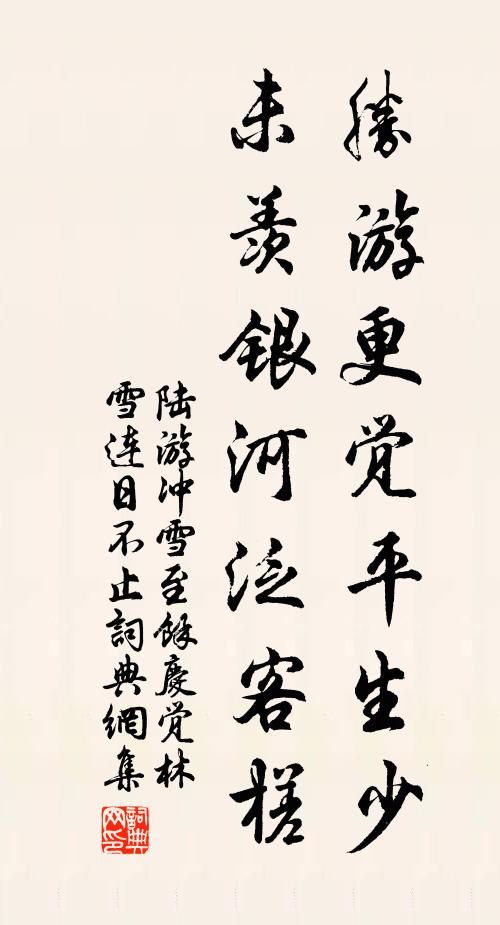 勝游更觉平生少
未羡银河泛客槎
陆游冲雪至餘慶觉林
雪连日不止詞典網集
詞典网印